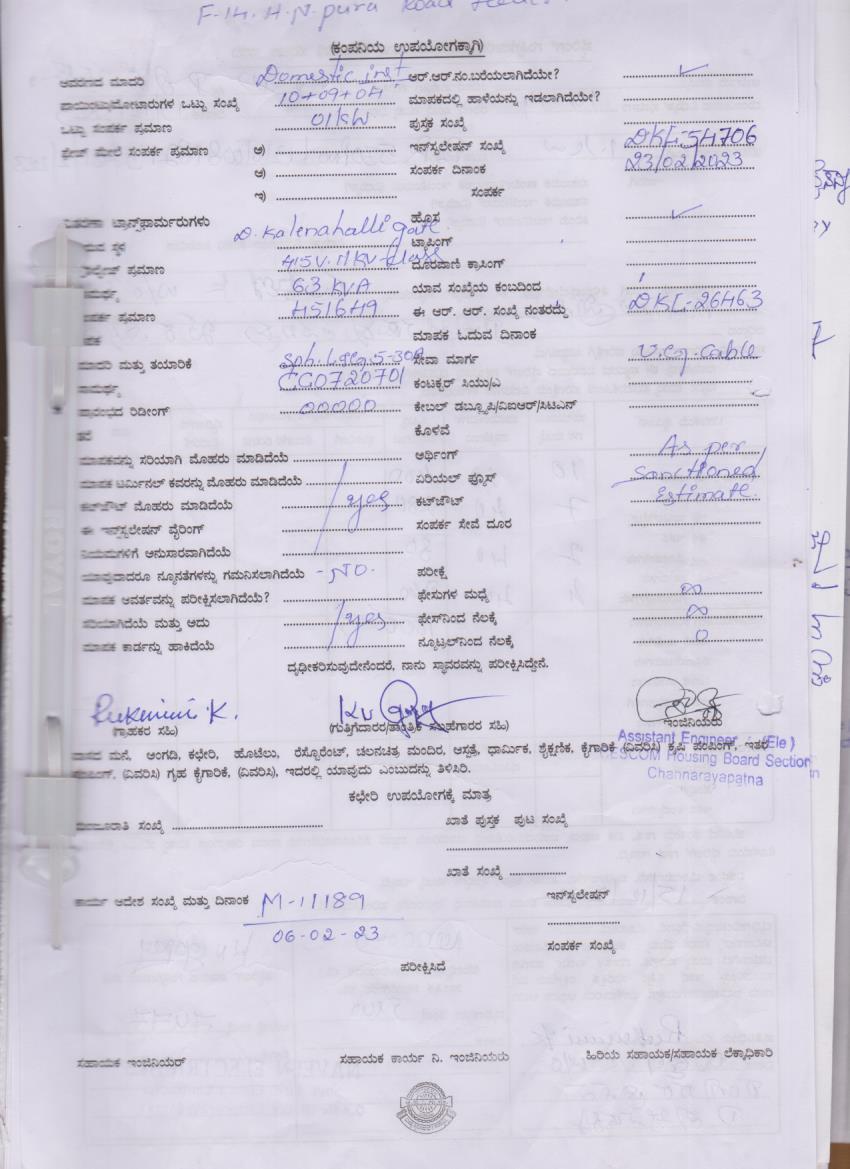 F-14. H.N. pura Road
(ಕಂಪನಿಯ ಉಪಯೋಗಕ್ಕಾಗಿ)
ಆವರಣದ ಮಾದರಿ Domestic inst. ಆರ್.ಆರ್.ನಂ.ಬರೆಯಲಾಗಿದೆಯೇ? ✓
ಪಾಯಿಂಟ್ಸು/ಮೋಟಾರುಗಳ ಒಟ್ಟು ಸಂಖ್ಯೆ 10+09+04 ಮಾಪಕದಲ್ಲಿ ಹಾಳೆಯನ್ನು ಇಡಲಾಗಿದೆಯೇ?
ಒಟ್ಟು ಸಂಪರ್ಕ ಪ್ರಮಾಣ 01KW ಪುಸ್ತಕ ಸಂಖ್ಯೆ
ಫೇಜ್ ಮೇಲೆ ಸಂಪರ್ಕ ಪ್ರಮಾಣ ಅ) ಇನ್‌ಸ್ಟಲೇಷನ್ ಸಂಖ್ಯೆ DKL-54706
ಆ) ಸಂಪರ್ಕ ದಿನಾಂಕ 23/02/2023
ಇ) ಸಂಪರ್ಕ
ವಿತರಣಾ ಟ್ರಾನ್ಸ್‌ಫಾರ್ಮರುಗಳು ಹೊಸ ✓
ಸ್ಥಳ D. Kalenahalli gate. ಟ್ಯಾಪಿಂಗ್
ಪ್ರಮಾಣ 415V. 11KV class ದೂರವಾಣಿ ಕ್ರಾಸಿಂಗ್
63 KVA ಯಾವ ಸಂಖ್ಯೆಯ ಕಂಬದಿಂದ
ಪ್ರಮಾಣ 451649 ಈ ಆರ್. ಆರ್. ಸಂಖ್ಯೆ ನಂತರದ್ದು DKL-26463
ಮಾಪಕ ಓದುವ ದಿನಾಂಕ
ಮಾದರಿ ಮತ್ತು ತಯಾರಿಕೆ Sph. L&G. 5-30A ಸೇವಾ ಮಾರ್ಗ U.G. Cable
CG0720701 ಕಂಟಕ್ಟರ್ ಸಿಯು/ಎ
ಪ್ರಾರಂಭದ ರಿಡೀಂಗ್ 00000 ಕೇಬಲ್ ಡಬ್ಲ್ಯೂಪಿ/ವಿಐಆರ್/ಸಿಟಿಎಸ್
ಕೊಳವೆ
ಮಾಪಕವನ್ನು ಸರಿಯಾಗಿ ಮೊಹರು ಮಾಡಿದೆಯೆ ಅರ್ಥಿಂಗ್ As per
ಮಾಪಕ ಟರ್ಮಿನಲ್ ಕವರನ್ನು ಮೊಹರು ಮಾಡಿದೆಯೆ ಏರಿಯಲ್ ಫ್ಯೂಸ್ Sanctioned
ಕಟ್‌ಔಟ್ ಮೊಹರು ಮಾಡಿದೆಯೆ yes ಕಟ್‌ಔಟ್ Estimate.
ಈ ಇನ್‌ಸ್ಟಲೇಷನ್ ವೈರಿಂಗ್ ಸಂಪರ್ಕ ಸೇವೆ ದೂರ
ನಿಯಮಗಳಿಗೆ ಅನುಸಾರವಾಗಿದೆಯೆ
ಯಾವುದಾದರೂ ನ್ಯೂನತೆಗಳನ್ನು ಗಮನಿಸಲಾಗಿದೆಯೆ -NO. ಪರೀಕ್ಷೆ
ಮಾಪಕ ಆವರ್ತವನ್ನು ಪರೀಕ್ಷಿಸಲಾಗಿದೆಯೆ? ಫೇಸುಗಳ ಮಧ್ಯೆ ∞
ಸರಿಯಾಗಿದೆಯೆ ಮತ್ತು ಅದು yes ಫೇಸ್‌ನಿಂದ ನೆಲಕ್ಕೆ ∞
ಮಾಪಕ ಕಾರ್ಡನ್ನು ಹಾಕಿದೆಯೆ ನ್ಯೂಟ್ರಲ್‌ನಿಂದ ನೆಲಕ್ಕೆ 0
ದೃಢೀಕರಿಸುವುದೇನೆಂದರೆ, ನಾನು ಸ್ಥಾವರವನ್ನು ಪರೀಕ್ಷಿಸಿದ್ದೇನೆ.
Rukmini K.
(ಗ್ರಾಹಕರ ಸಹಿ) ಇಂಜಿನಿಯರು
Assistant Engineer (Ele)
ವಾಸದ ಮನೆ, ಅಂಗಡಿ, ಕಛೇರಿ, ಹೊಟೆಲು, ರೆಸ್ಟೋರೆಂಟ್, ಚಲನಚಿತ್ರ ಮಂದಿರ, ಆಸ್ಪತ್ರೆ, ಧಾರ್ಮಿಕ, ಶೈಕ್ಷಣಿಕ, ಕೈಗಾರಿಕೆ (ವಿವರಿಸಿ) ಕೃಷಿ ಪಂಪಿಂಗ್, ಇತರೆ
CESCOM Housing Board Section
ಪಂಪಿಂಗ್, (ವಿವರಿಸಿ) ಗೃಹ ಕೈಗಾರಿಕೆ, (ವಿವರಿಸಿ), ಇದರಲ್ಲಿ ಯಾವುದು ಎಂಬುದನ್ನು ತಿಳಿಸಿರಿ.
Channarayapatna
ಕಛೇರಿ ಉಪಯೋಗಕ್ಕೆ ಮಾತ್ರ
ಮಂಜೂರಾತಿ ಸಂಖ್ಯೆ ಖಾತೆ ಪುಸ್ತಕ ಪುಟ ಸಂಖ್ಯೆ
ಖಾತೆ ಸಂಖ್ಯೆ
ಕಾರ್ಯ ಆದೇಶ ಸಂಖ್ಯೆ ಮತ್ತು ದಿನಾಂಕ M-11189 ಇನ್‌ಸ್ಟಲೇಷನ್
06-02-23
ಸಂಪರ್ಕ ಸಂಖ್ಯೆ
ಪರೀಕ್ಷಿಸಿದೆ
ಸಹಾಯಕ ಇಂಜಿನಿಯರ್ ಸಹಾಯಕ ಕಾರ್ಯ ನಿ. ಇಂಜಿನಿಯರು ಹಿರಿಯ ಸಹಾಯಕ/ಸಹಾಯಕ ಲೆಕ್ಕಾಧಿಕಾರಿ